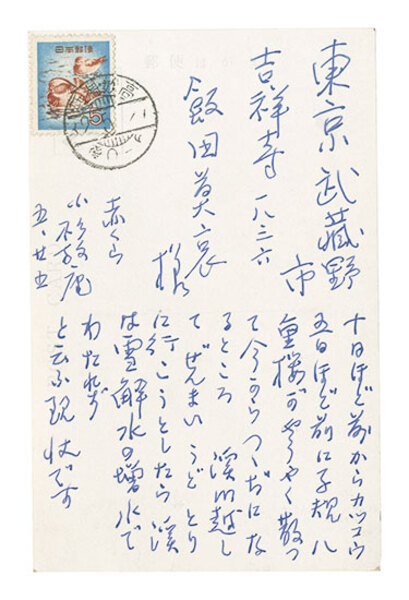 郵便はがき
日本郵便
東京 武蔵野市
吉祥寺 一八三六
飯田莫哀
様
赤くら
小杉放庵
五、廿五
十日ほど前からカツコウ
五日ほど前に子規 八
重桜がやうやく散つ
て今からつゝじにな
るところ 渓川越し
てぜんまい うど とり
に行こうとしたら 渓
は雪解水の増水で
わたれず
と云ふ現状です